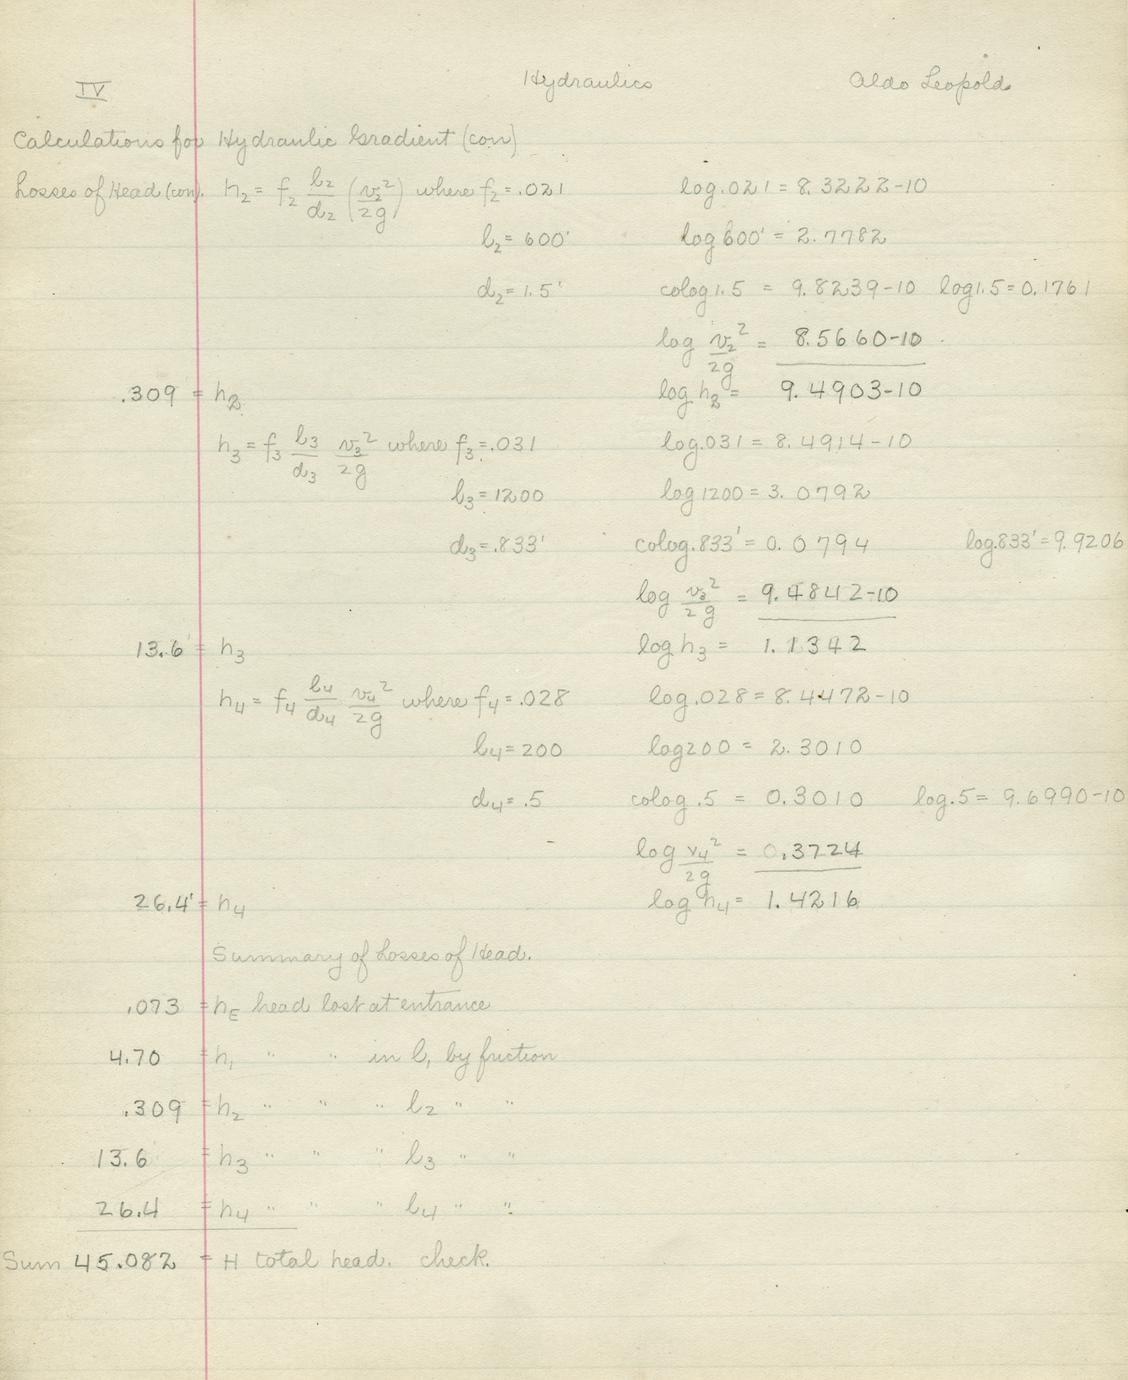 IV Hydraulics Aldo Leopold
Calculations for Hydraulic Gradient (con)
Losses of Head (con). h₂ = f₂ l₂/d₂ (v₂²/2g) where f₂ = .021 log .021 = 8.3222-10
l₂ = 600' log 600' = 2.7782
d₂ = 1.5' colog 1.5 = 9.8239-10 log 1.5 = 0.1761
log v₂²/2g = 8.5660-10
.309 = h₂ log h₂ = 9.4903-10
h₃ = f₃ l₃/d₃ v₃²/2g where f₃ = .031 log .031 = 8.4914-10
l₃ = 1200 log 1200 = 3.0792
d₃ = .833' colog .833' = 0.0794 log .833' = 9.9206
log v₃²/2g = 9.4842-10
13.6' = h₃ log h₃ = 1.1342
h₄ = f₄ l₄/d₄ v₄²/2g where f₄ = .028 log .028 = 8.4472-10
l₄ = 200 log 200 = 2.3010
d₄ = .5 colog .5 = 0.3010 log .5 = 9.6990-10
log v₄²/2g = 0.3724
26.4' = h₄ log h₄ = 1.4216
Summary of Losses of Head.
.073 = hE head lost at entrance
4.70 = h₁ " " in l₁ by friction
.309 = h₂ " " " l₂ " "
13.6 = h₃ " " " l₃ " "
26.4 = h₄ " " " l₄ " "
Sum 45.082 = H total head. check.